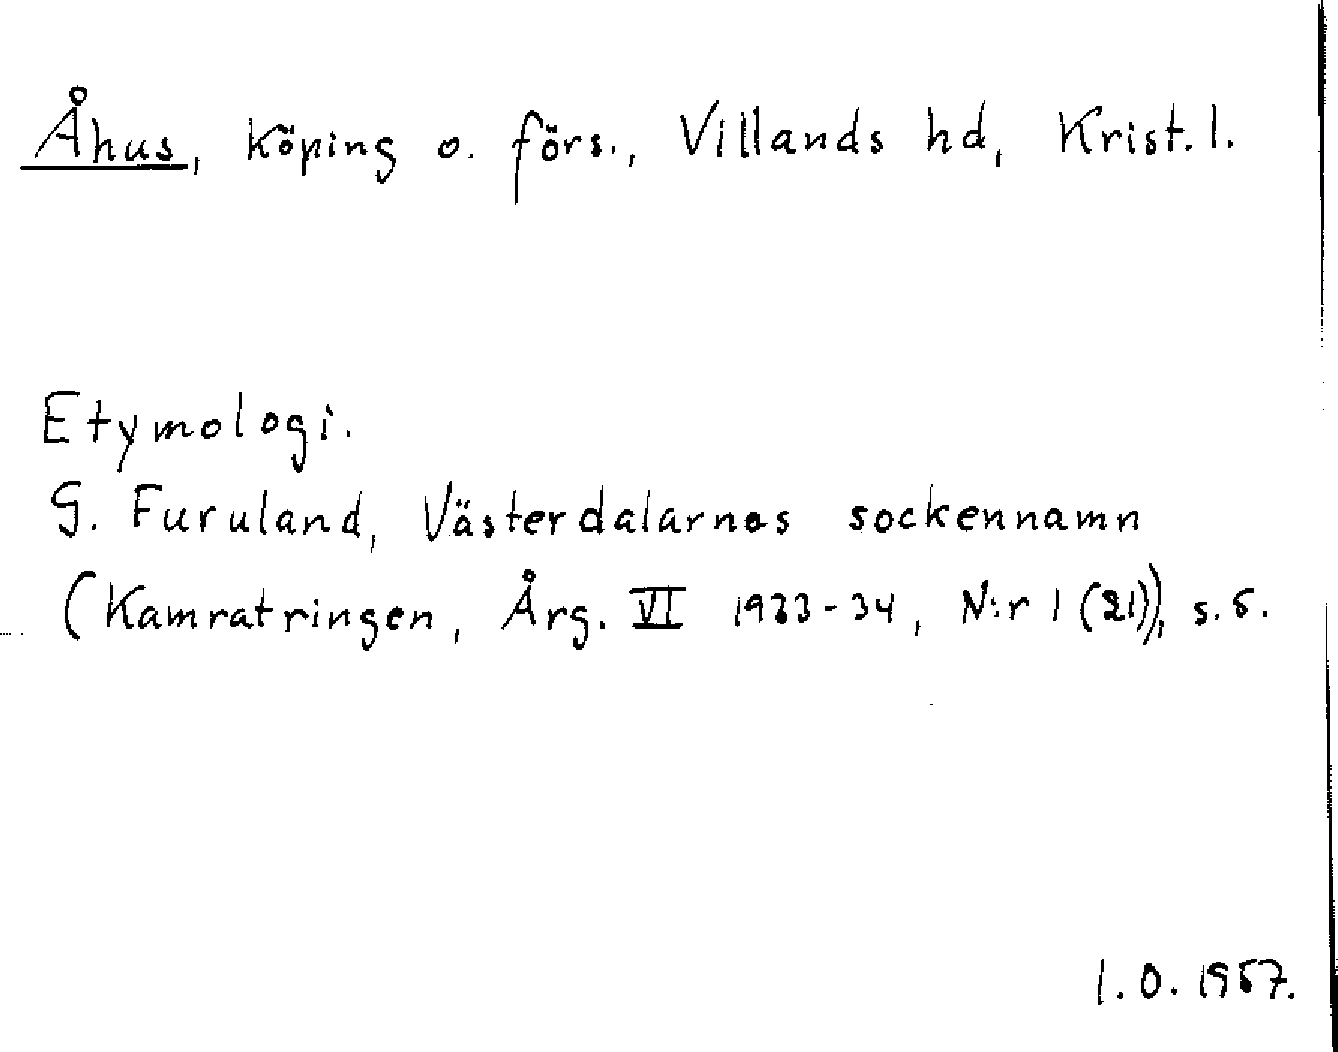 Åhus, köping o. förs., Villands hd, Krist. l.
Etymologi.
G. Furuland, Västerdalarnas sockennamn
(Kamratringen, Årg. VI 1933-34, N:r 1 (21)), s. 5.
I. O. 1957.